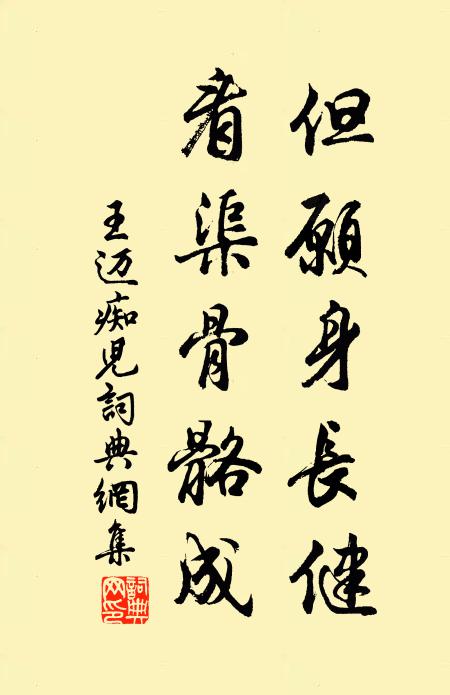 但願身長健
看渠骨骼成
王迈痴児詞典網集
詞典网印